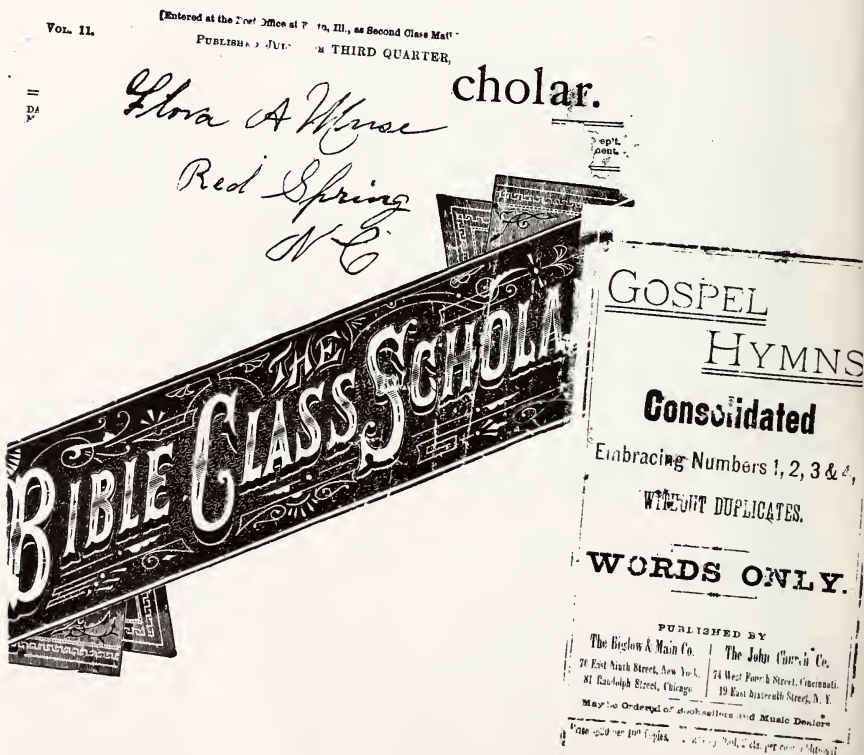 Vol. 11.
[Entered at the Post Office at Ill., as Second Class
THIRD QUARTER,
cholar.
Flora A Muse
Red Spring
N C
ep't.
ment.
THE
BIBLE CLASS SCHOLA
GOSPEL
HYMNS
Consolidated
Embracing Numbers 1, 2, 3 & 4,
WITHOUT DUPLICATES.
WORDS ONLY.
PUBLISHED BY
The Biglow & Main Co.
76 East Ninth Street, New York.
81 Randolph Street, Chicago
The John Church Co.
74 West Fourth Street, Cincinnati.
19 East Sixteenth Street, N. Y.
May be Ordered of Booksellers and Music Dealers
per 100 Copies.